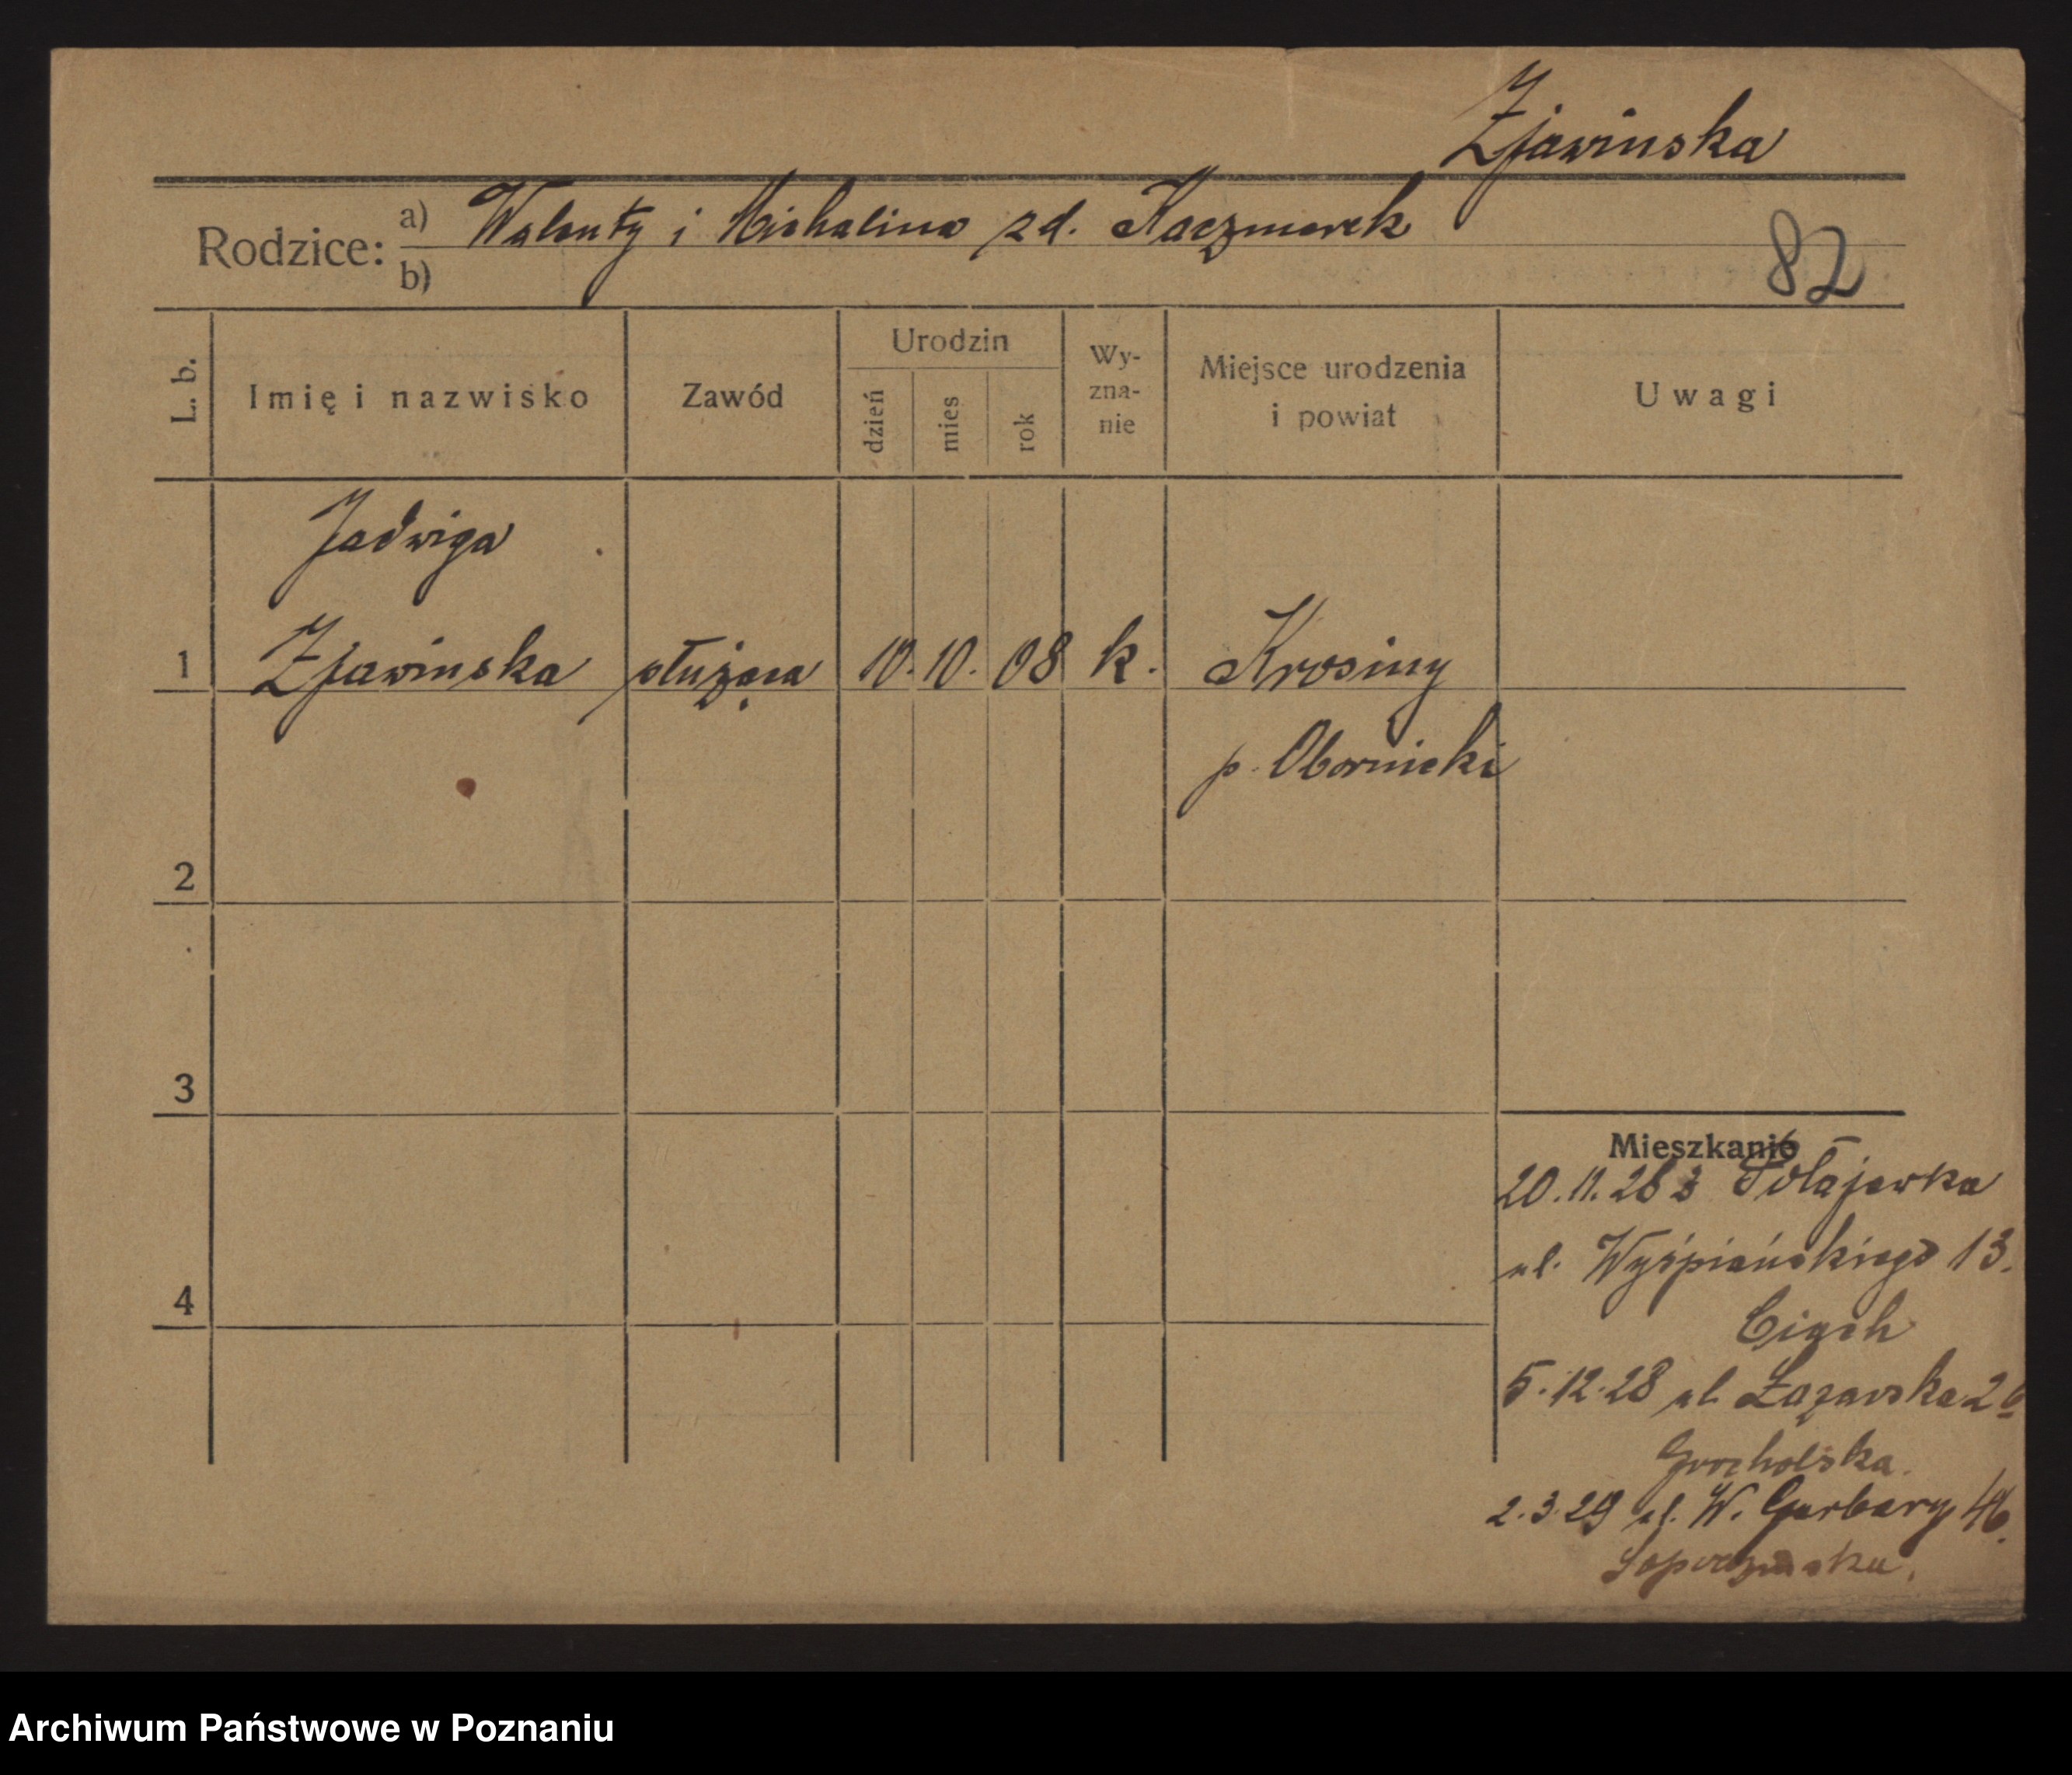 Zjawinska
Rodzice: a) Walenty i Michalina zd. Kaczmarek
b)
82
L. b.
Imię i nazwisko
Zawód
Urodzin
dzień
mies
rok
Wy-
zna-
nie
Miejsce urodzenia
i powiat
Uwagi
Jadwiga
1 Zjawinska służąca 10. 10. 08 k. Krosiny
p. Obornicki
2
3
4
Mieszkanie
20.11.28 z
ul. Wyśpiańskiego 13.
Ciach
5.12.28 ul. Łazarska 2
Grocholska.
2.3.29 ul. W. Garbary 46.
Archiwum Państwowe w Poznaniu